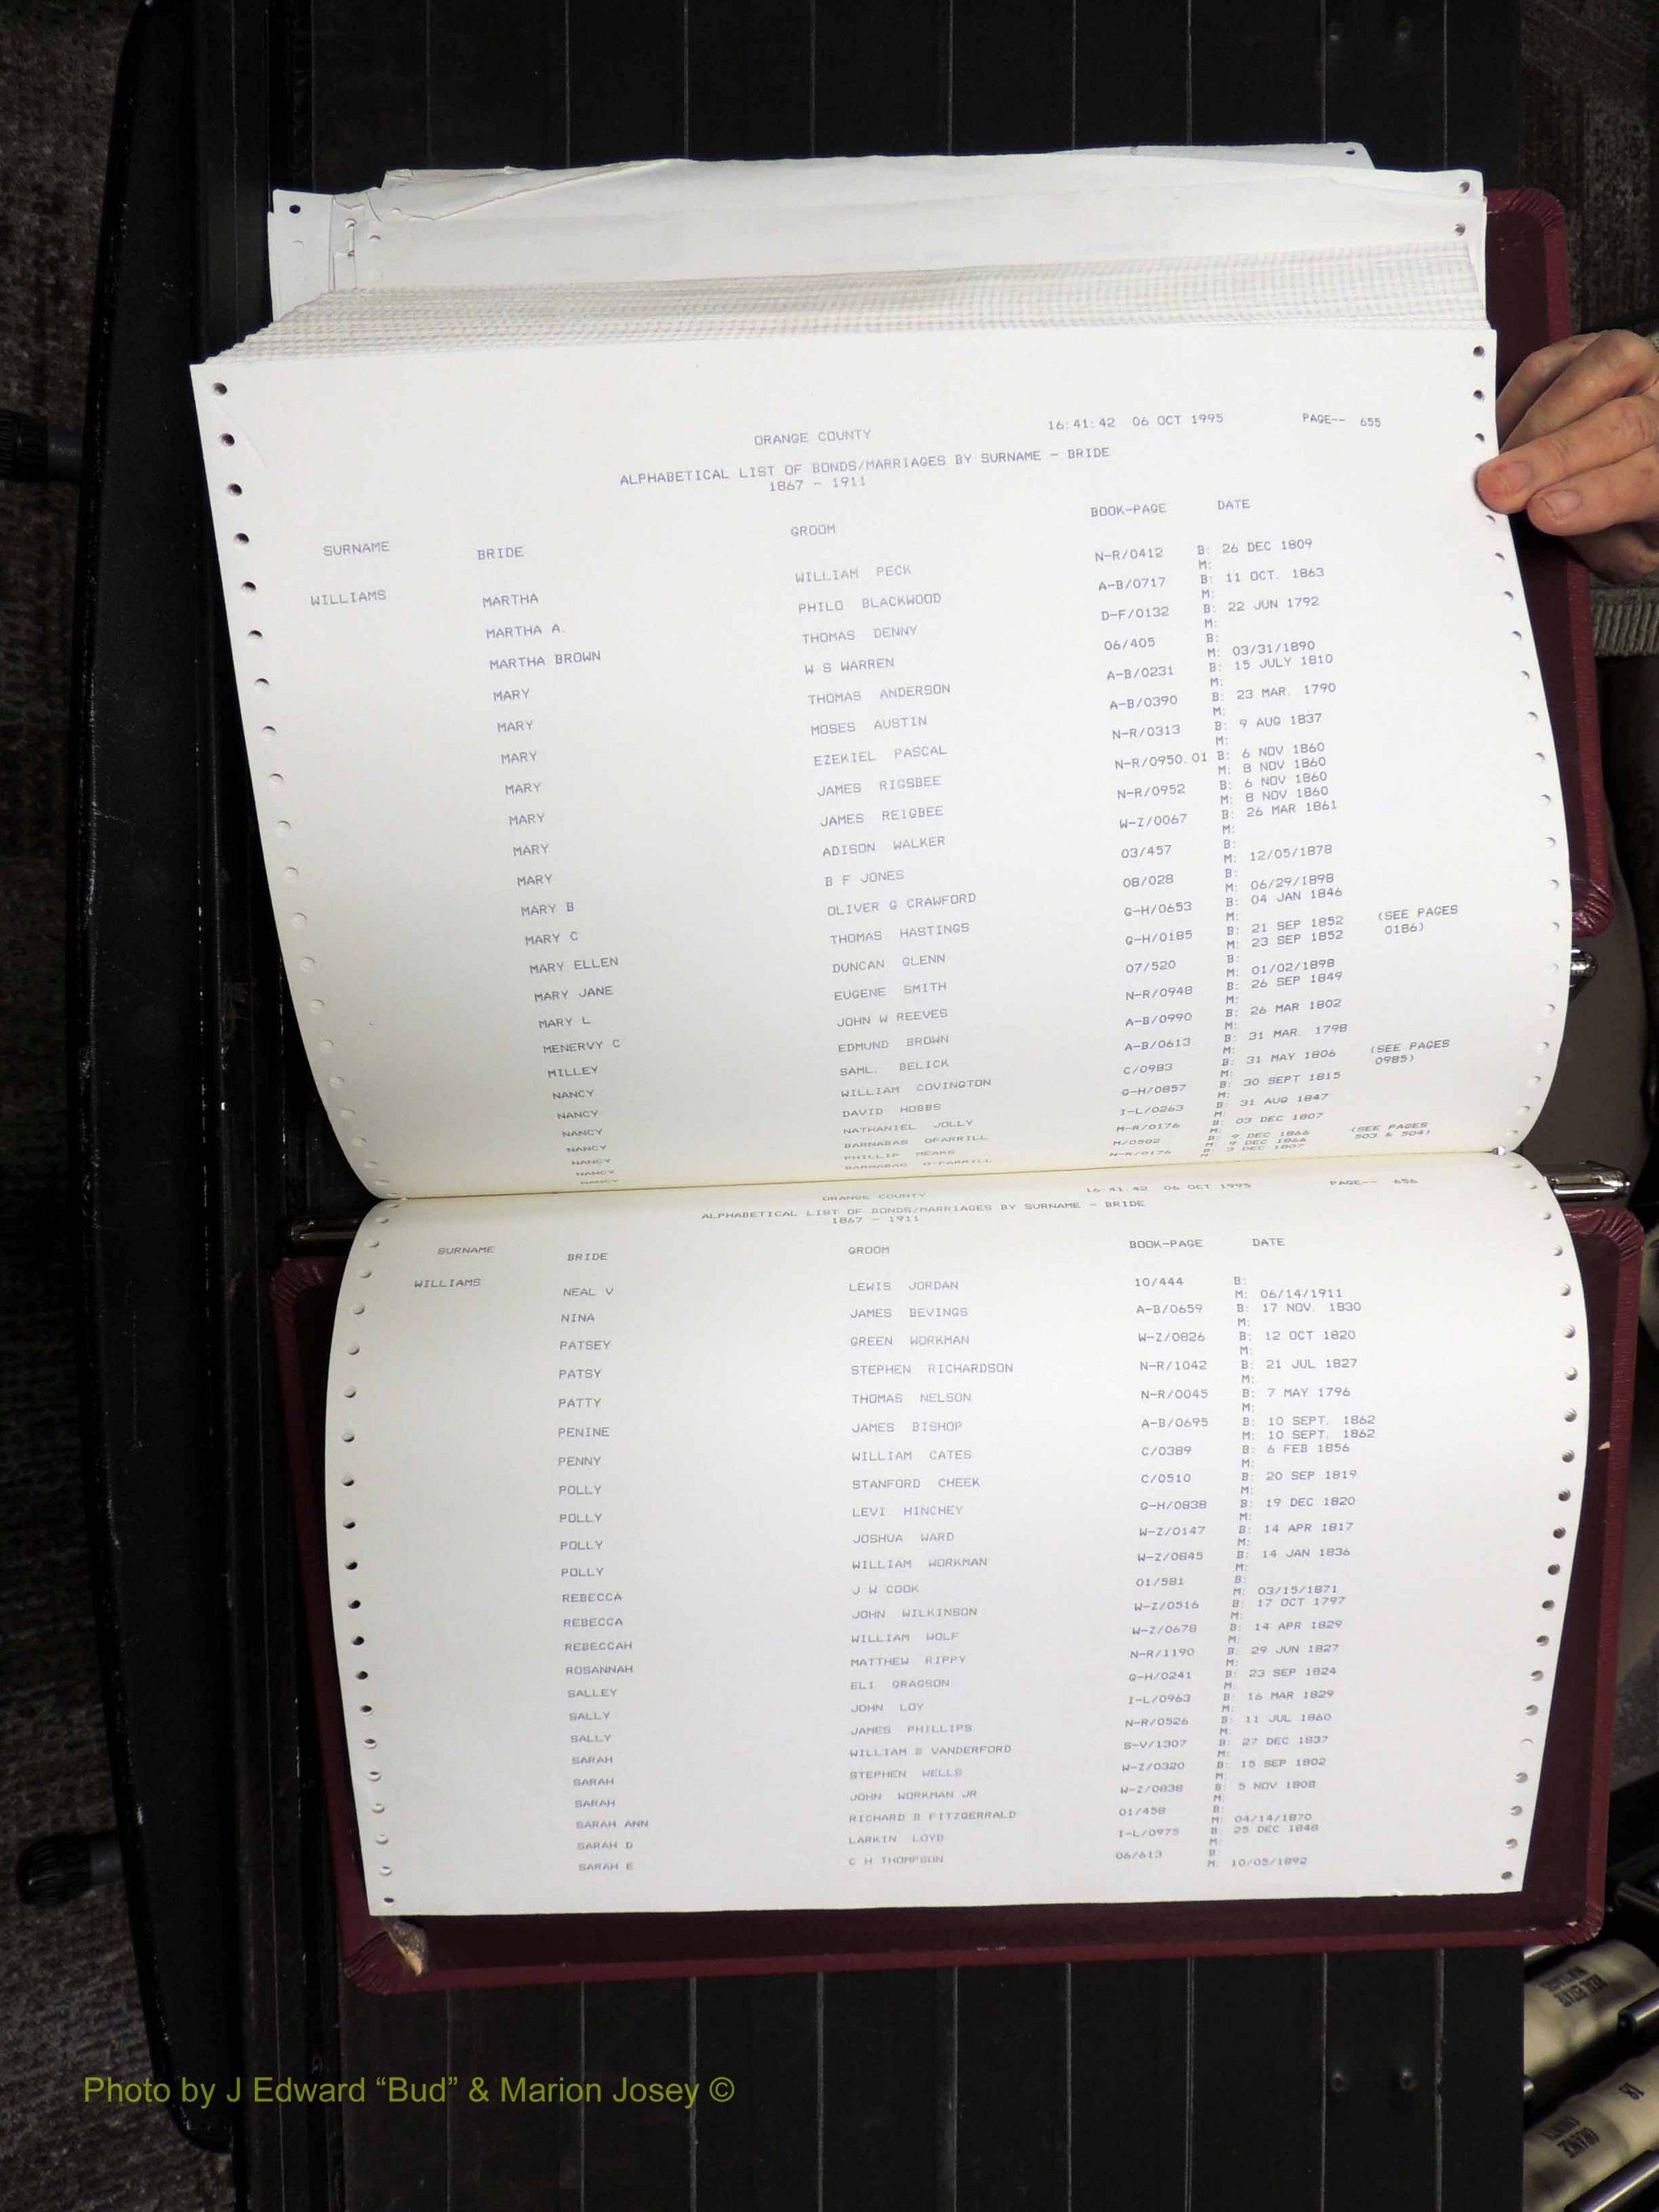 16:41:42 06 OCT 1995 PAGE-- 655
ORANGE COUNTY
ALPHABETICAL LIST OF BONDS/MARRIAGES BY SURNAME - BRIDE
1867 - 1911
SURNAME BRIDE GROOM BOOK-PAGE DATE
WILLIAMS MARTHA WILLIAM PECK N-R/0412 B: 26 DEC 1809
M:
MARTHA A. PHILO BLACKWOOD A-B/0717 B: 11 OCT. 1863
M:
MARTHA BROWN THOMAS DENNY D-F/0132 B: 22 JUN 1792
M:
MARY W S WARREN 06/405 B:
M: 03/31/1890
MARY THOMAS ANDERSON A-B/0231 B: 15 JULY 1810
M:
MARY MOSES AUSTIN A-B/0390 B: 23 MAR. 1790
M:
MARY EZEKIEL PASCAL N-R/0313 B: 9 AUG 1837
M:
MARY JAMES RIGSBEE N-R/0950.01 B: 6 NOV 1860
M: 8 NOV 1860
MARY JAMES REIGBEE N-R/0952 B: 6 NOV 1860
M: 8 NOV 1860
MARY ADISON WALKER W-Z/0067 B: 26 MAR 1861
M:
MARY B B F JONES 03/457 B:
M: 12/05/1878
MARY C OLIVER G CRAWFORD 08/028 B:
M: 06/29/1898
MARY ELLEN THOMAS HASTINGS G-H/0653 B: 04 JAN 1846
M:
MARY JANE DUNCAN GLENN G-H/0185 B: 21 SEP 1852 (SEE PAGES
M: 23 SEP 1852 0186)
MARY L EUGENE SMITH 07/520 B:
M: 01/02/1898
MENERVY C JOHN W REEVES N-R/0948 B: 26 SEP 1849
M:
MILLEY EDMUND BROWN A-B/0990 B: 26 MAR 1802
M:
NANCY SAML. BELICK A-B/0613 B: 31 MAR. 1798
M:
NANCY WILLIAM COVINGTON C/0983 B: 31 MAY 1806 (SEE PAGES
M: 0985)
NANCY DAVID HOBBS G-H/0857 B: 30 SEPT 1815
M:
NANCY NATHANIEL JOLLY I-L/0263 B: 31 AUG 1847
M:
NANCY BARNABAS OFARRILL M-R/0176 B: 03 DEC 1807
M:
NANCY PHILLIP MEAKS M/0502 B: 9 DEC 1866 (SEE PAGES
M: 9 DEC 1866 503 & 504)
NANCY BARNABAS O'FARRILL N-R/0176 B: 3 DEC 1807
16:41:42 06 OCT 1995 PAGE-- 656
ORANGE COUNTY
ALPHABETICAL LIST OF BONDS/MARRIAGES BY SURNAME - BRIDE
1867 - 1911
SURNAME BRIDE GROOM BOOK-PAGE DATE
WILLIAMS NEAL V LEWIS JORDAN 10/444 B:
M: 06/14/1911
NINA JAMES BEVINGS A-B/0659 B: 17 NOV. 1830
M:
PATSEY GREEN WORKMAN W-Z/0826 B: 12 OCT 1820
M:
PATSY STEPHEN RICHARDSON N-R/1042 B: 21 JUL 1827
M:
PATTY THOMAS NELSON N-R/0045 B: 7 MAY 1796
M:
PENINE JAMES BISHOP A-B/0695 B: 10 SEPT. 1862
M: 10 SEPT. 1862
PENNY WILLIAM CATES C/0389 B: 6 FEB 1856
M:
POLLY STANFORD CHEEK C/0510 B: 20 SEP 1819
M:
POLLY LEVI HINCHEY G-H/0838 B: 19 DEC 1820
M:
POLLY JOSHUA WARD W-Z/0147 B: 14 APR 1817
M:
POLLY WILLIAM WORKMAN W-Z/0845 B: 14 JAN 1836
M:
REBECCA J W COOK 01/581 B:
M: 03/15/1871
REBECCA JOHN WILKINSON W-Z/0516 B: 17 OCT 1797
M:
REBECCAH WILLIAM WOLF W-Z/0678 B: 14 APR 1829
M:
ROSANNAH MATTHEW RIPPY N-R/1190 B: 29 JUN 1827
M:
SALLEY ELI GRAGSON G-H/0241 B: 23 SEP 1824
M:
SALLY JOHN LOY I-L/0963 B: 16 MAR 1829
M:
SALLY JAMES PHILLIPS N-R/0526 B: 11 JUL 1860
M:
SARAH WILLIAM B VANDERFORD S-V/1307 B: 27 DEC 1837
M:
SARAH STEPHEN WELLS W-Z/0320 B: 15 SEP 1802
M:
SARAH JOHN WORKMAN JR W-Z/0838 B: 5 NOV 1808
M:
SARAH ANN RICHARD B FITZGERRALD 01/458 B:
M: 04/14/1870
SARAH D LARKIN LOYD I-L/0975 B: 25 DEC 1848
M:
SARAH E C H THOMPSON 06/613 B:
M: 10/05/1892
REAL ESTATE
ORANGE
COUNTY
18
Photo by J Edward “Bud” & Marion Josey ©